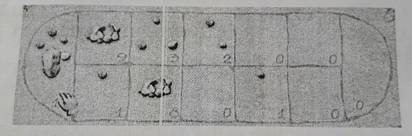 9 3 2 0 0
1 6 0 1 0 0